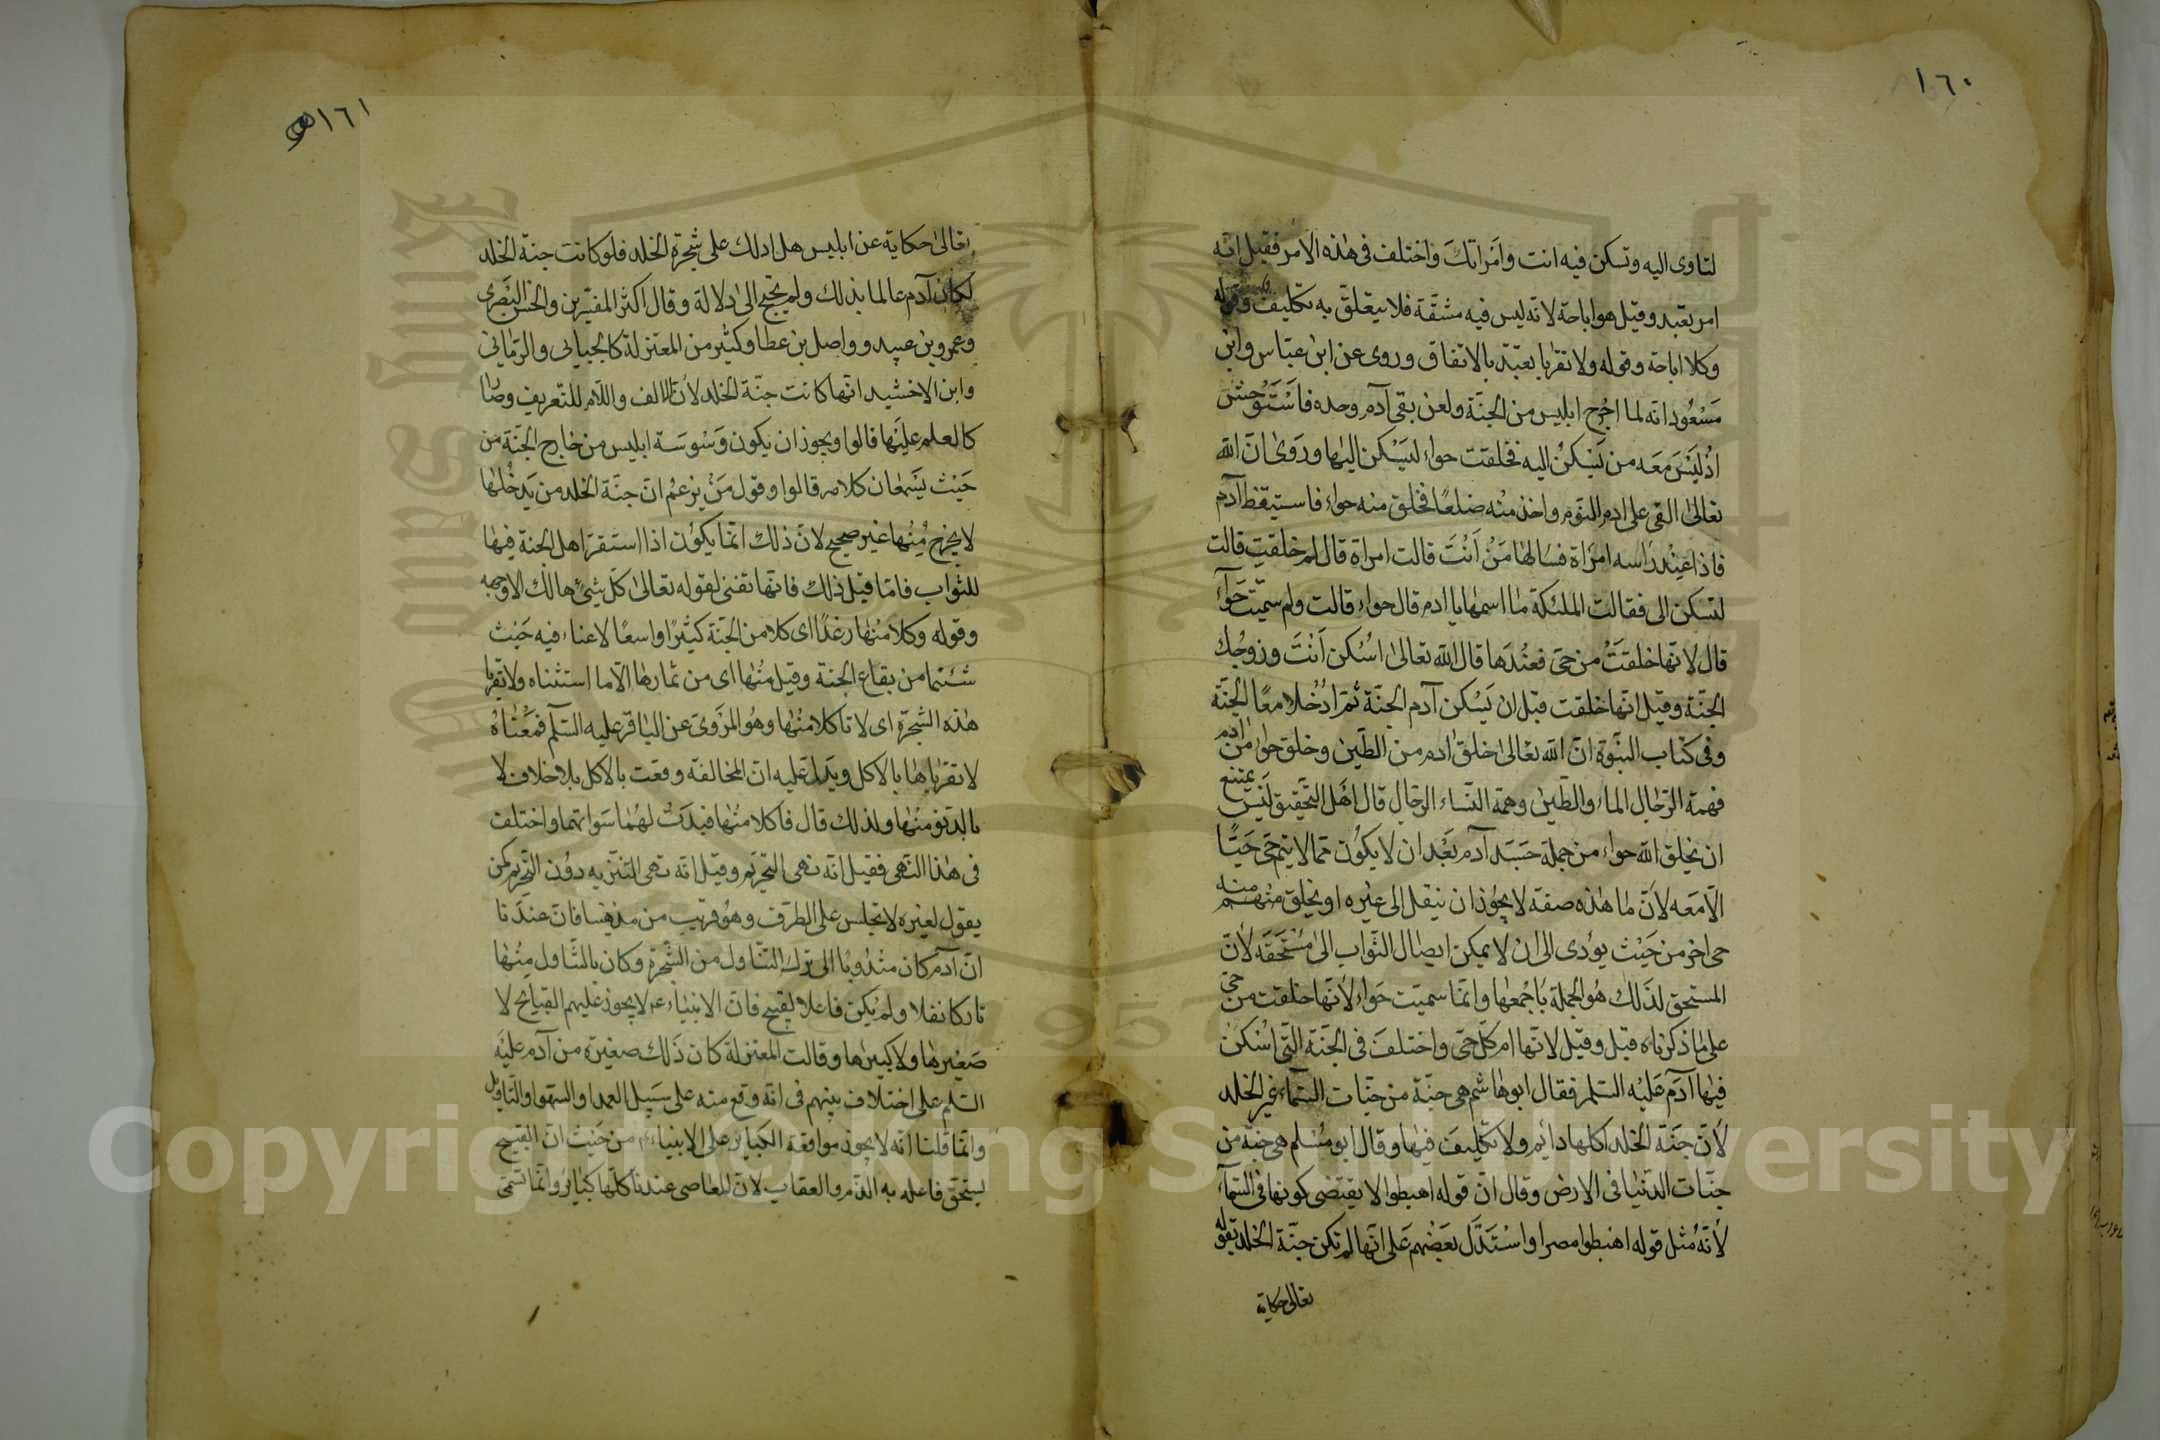 ١٦٠
لتاوى اليه وتسكن فيه انت وامراتك واختلف فى هذه الامر فقيل انه
امر تعبد وقيل هو اباحة لانه ليس فيه مشقة فلا يتعلق به تكليف وقوله
وكلا اباحة وقوله ولا تقربا تعبد بالاتفاق وروى عن ابن عباس وابن
مسعود انه لما اخرج ابليس من الجنة ولعن بقى آدم وحده فاستوحش
اذ ليس معه من يسكن اليه فخلقت حواء ليسكن اليها وروى ان الله
تعالى القى على ادم النوم واخذ منه ضلعا فخلق منه حواء فاستيقظ آدم
فاذا عند راسه امراة فسالها من انت قالت امراة قال لم خلقت قالت
لتسكن الى فقالت الملئكة ما اسمها يا ادم قال حواء قالت ولم سميت حواء
قال لانها خلقت من حى فعندها قال الله تعالى اسكن انت وزوجك
الجنة وقيل انها خلقت قبل ان يسكن آدم الجنة ثم ادخلا معا الجنة
وفى كتاب النبوة ان الله تعالى خلق ادم من الطين وخلق حوا من آدم
فهمة الرجال الماء والطين وهمة النساء الرجال قال اهل التحقيق ليس يمتنع
ان يخلق الله حواء من جملة جسد آدم بعد ان لا يكون مما لا يتم حى حيا
الا معه لان ما هذه صفته لا يجوز ان ينقل الى غيره او يخلق منه
حى اخر من حيث يودى الى ان لا يمكن ايصال الثواب الى مستحقه لان
المستحق لذلك هو الجملة باجمعها وانما سميت حواء لانها خلقت من حى
على ما ذكرناه قبل وقيل لانها ام كل حى واختلف فى الجنة التى اسكن
فيها آدم عليه السلم فقال ابو هاشم هى جنة من جنات السماء غير الخلد
لان جنة الخلد اكلها دايم ولا تكليف فيها وقال ابو مسلم هى جنة من
جنات الدنيا فى الارض وقال ان قوله اهبطوا لا يقتضى كونها فى السماء
لانه مثل قوله اهبطوا مصرا واستدل بعضهم على انها لم تكن جنة الخلد بقوله
تعالى حكاية
١٦١
تعالى حكاية عن ابليس هل ادلك على شجرة الخلد فلو كانت جنة الخلد
لكان آدم عالما بذلك ولم يحتج الى دلالة وقال اكثر المفسرين والحسن البصرى
وعمرو بن عبيد وواصل بن عطا وكثير من المعتزلة كالجبائى والرمانى
وابن الاخشيد انها كانت جنة الخلد لان الالف واللام للتعريف وصارا
كالعلم عليها قالوا ويجوز ان يكون وسوسة ابليس من خارج الجنة من
حيث يسمعان كلامه قالوا وقول من يزعم ان جنة الخلد من يدخلها
لا يخرج منها غير صحيح لان ذلك انما يكون اذا استقر اهل الجنة فيها
للثواب فاما قبل ذلك فانها تفنى لقوله تعالى كل شئ هالك الا وجهه
وقوله وكلا منها رغدا اى كلا من الجنة كثيرا واسعا لا عناء فيه حيث
شئتما من بقاع الجنة وقيل منها اى من ثمارها الا ما استثناه ولا تقربا
هذه الشجرة اى لا تاكلا منها وهو المروى عن الباقر عليه السلم فمعناه
لا تقرباها بالاكل ويدل عليه ان المخالفة وقعت بالاكل بلا خلاف لا
بالدنو منها ولذلك قال فاكلا منها فبدت لهما سواتهما واختلف
فى هذا النهى فقيل انه نهى التحريم وقيل انه نهى التنزيه دون التحريم كمن
يقول لغيره لا تجلس على الطرق وهو قريب من مذهبنا فان عندنا
ان آدم كان مندوبا الى ترك التناول من الشجرة وكان بالتناول منها
تاركا نفلا ولم يكن فاعلا لقبيح فان الانبياء عم لا يجوز عليهم القبايح لا
صغيرها ولا كبيرها وقالت المعتزلة كان ذلك صغيرة من آدم عليه
السلم على اختلاف بينهم فى انه وقع منه على سبيل العمد او السهو او التاويل
وانما قلنا انه لا يجوز مواقعة الكباير على الانبياء عم من حيث ان القبيح
يستحق فاعله به الذم والعقاب لان المعاصى عندنا كلها كباير وانما تسمى
Copyright © King Saud University
King Saud University
1957